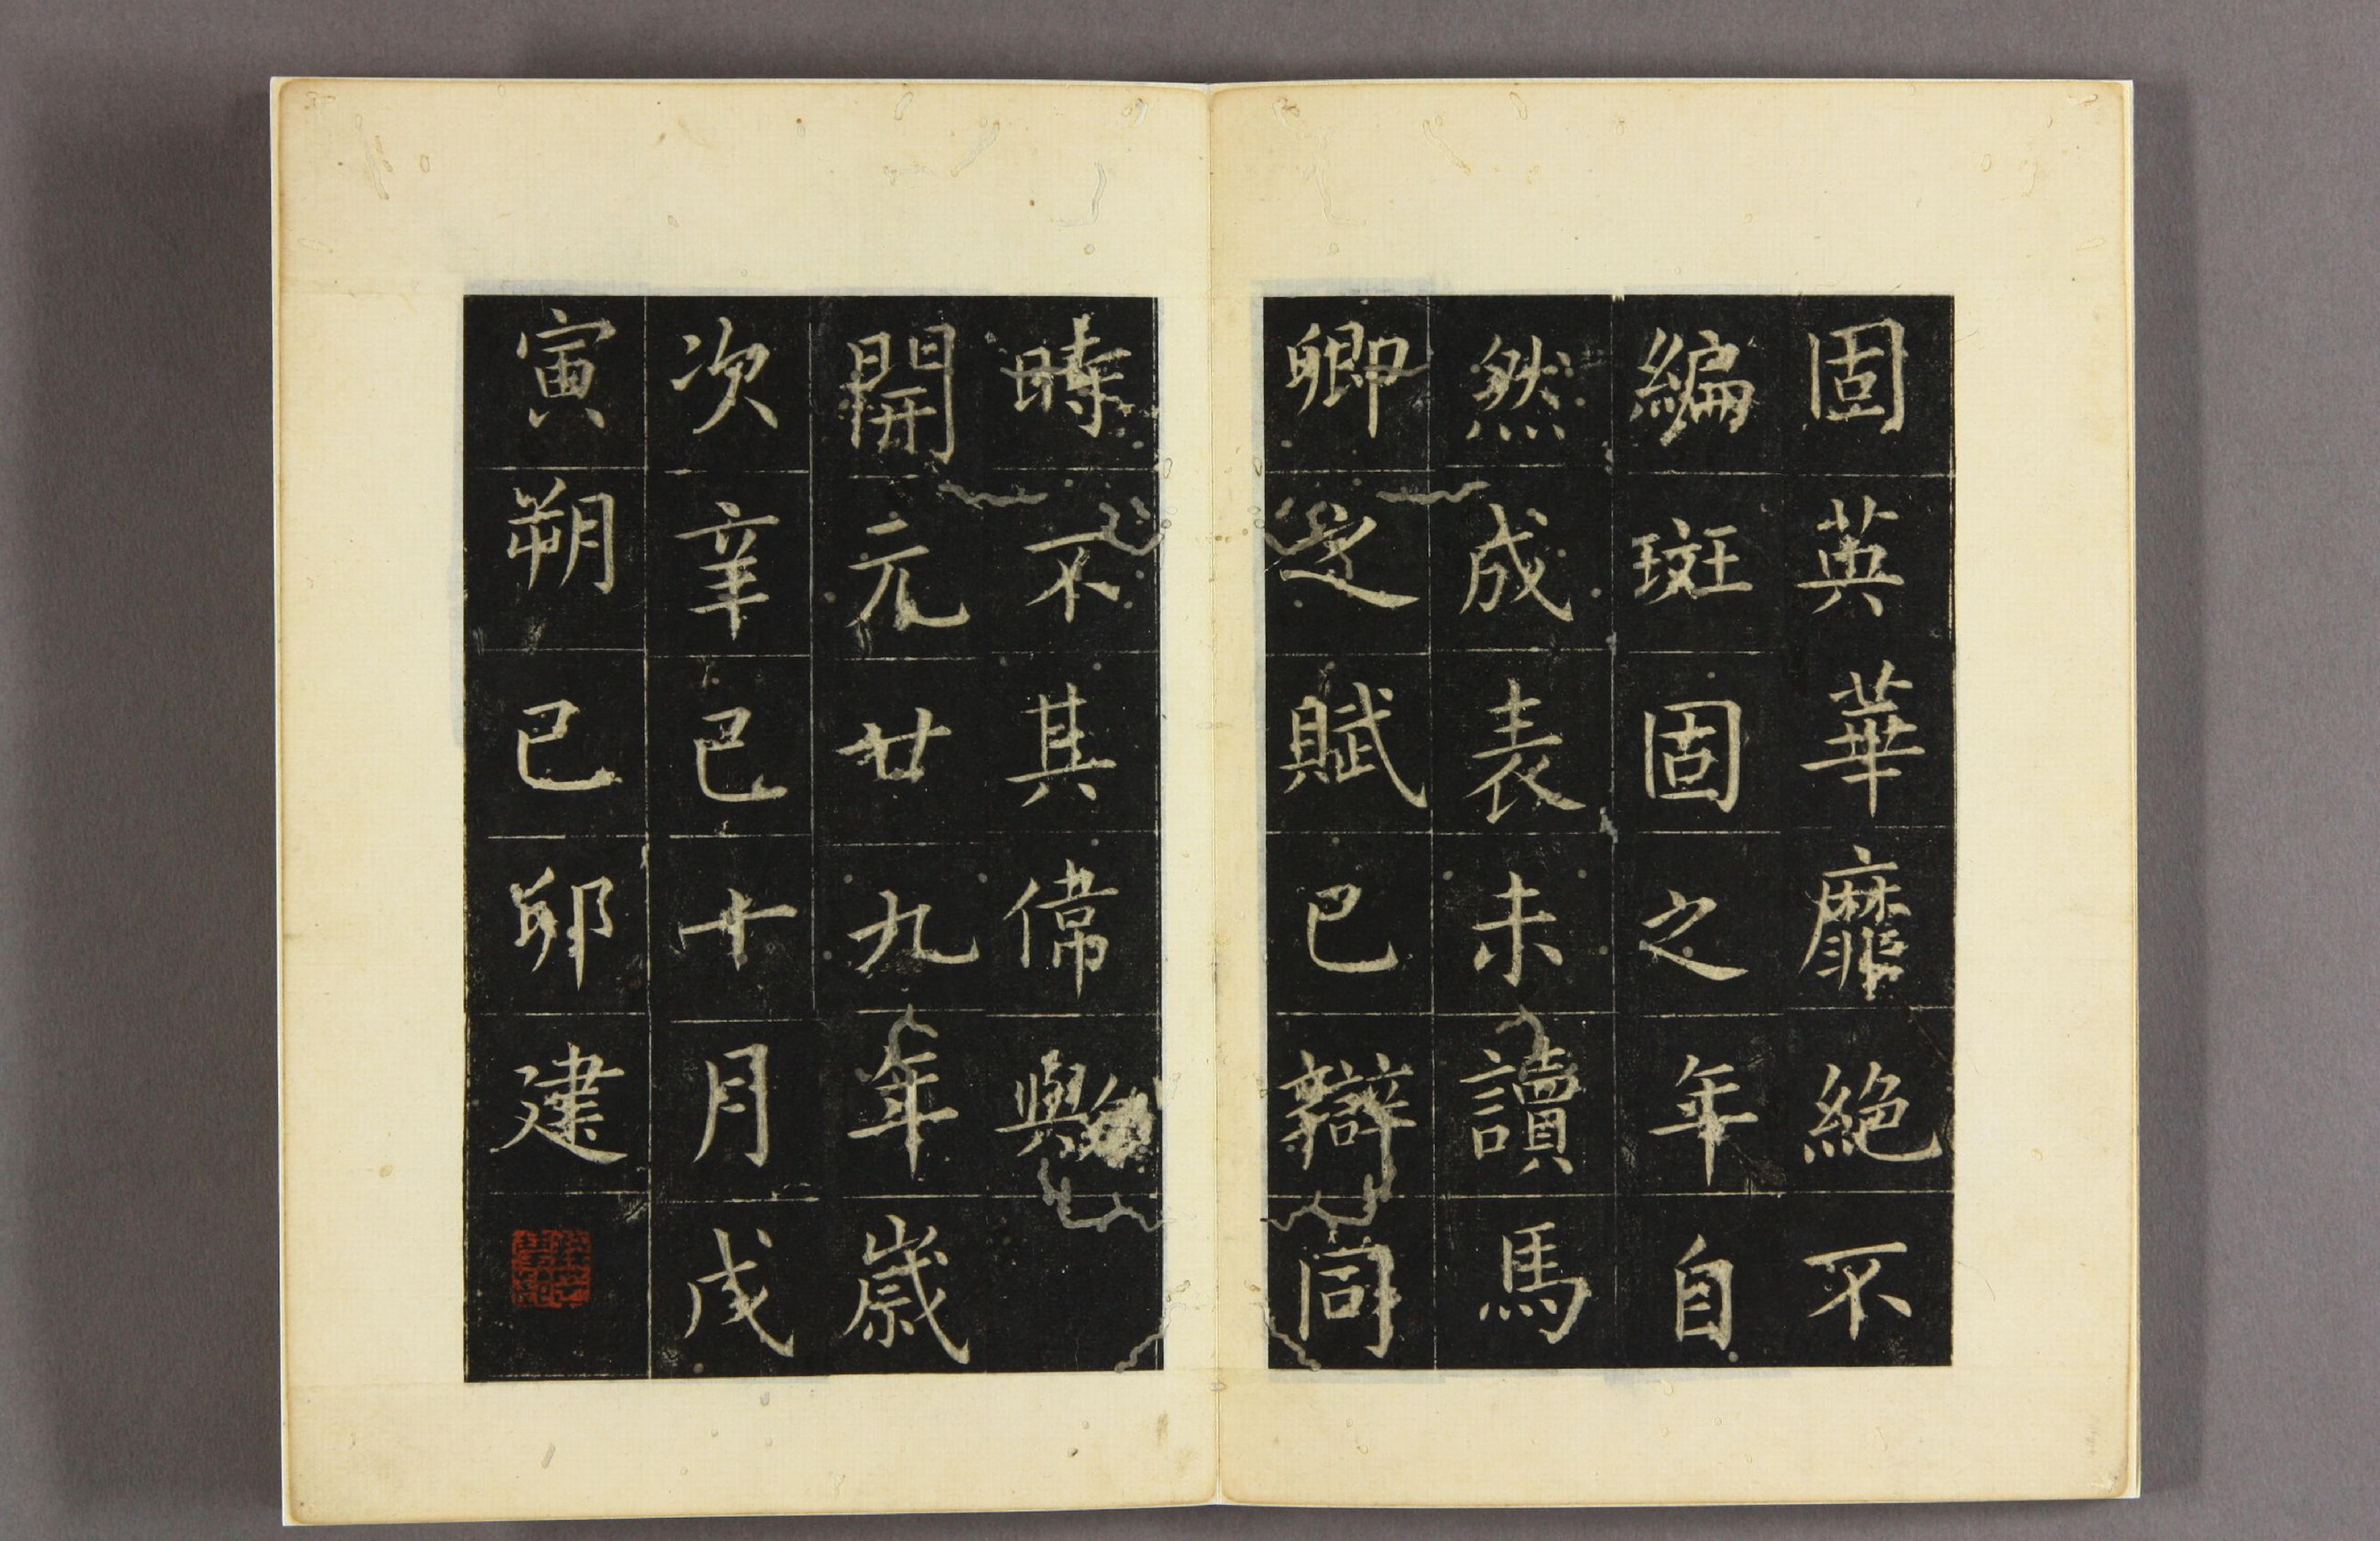 固英華靡絕不
編斑固之年自
然成表未讀馬
卿之賦已辯同
時不其偉歟
開元廿九年歲
次辛巳十月戊
寅朔已卯建